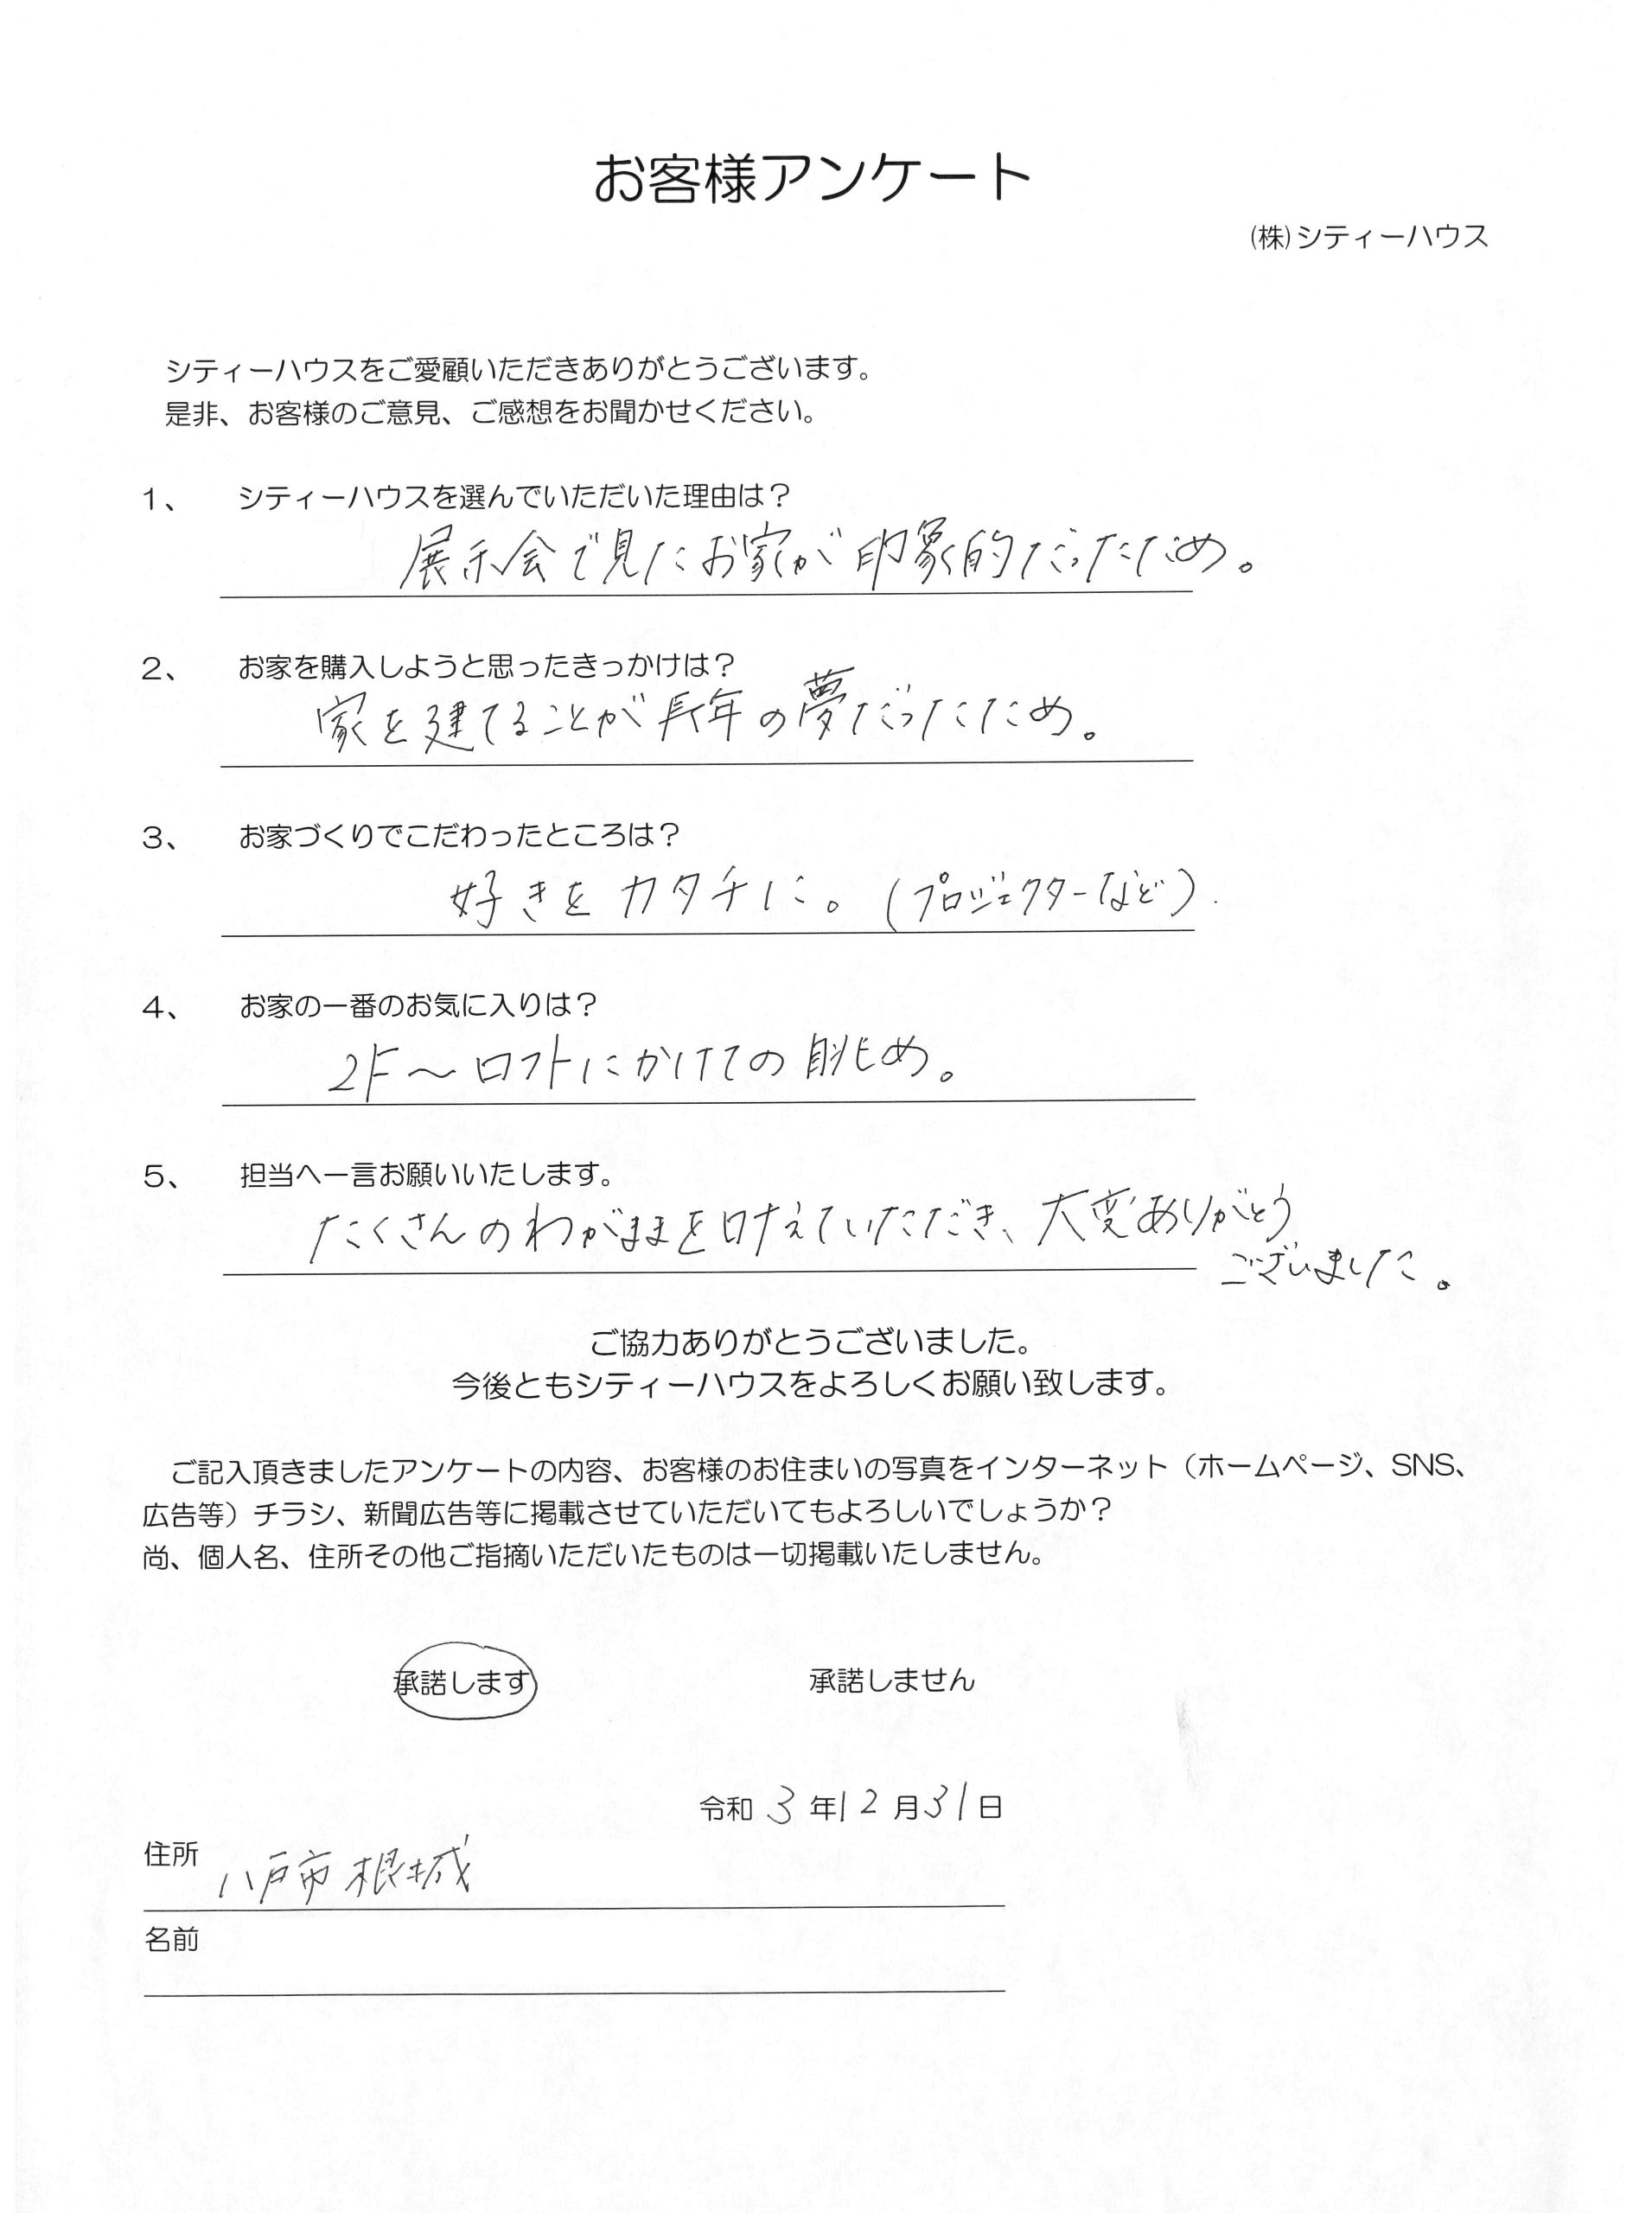 お客様アンケート
(株)シティーハウス
シティーハウスをご愛顧いただきありがとうございます。
是非、お客様のご意見、ご感想をお聞かせください。
1、 シティーハウスを選んでいただいた理由は？
展示会で見たお家が印象的だったため。
2、 お家を購入しようと思ったきっかけは？
家を建てることが長年の夢だったため。
3、 お家づくりでこだわったところは？
好きをカタチに。(プロジェクターなど)
4、 お家の一番のお気に入りは？
2F～ロフトにかけての眺め。
5、 担当へ一言お願いいたします。
たくさんのわがままを叶えていただき、大変ありがとう
ございました。
ご協力ありがとうございました。
今後ともシティーハウスをよろしくお願い致します。
ご記入頂きましたアンケートの内容、お客様のお住まいの写真をインターネット（ホームページ、SNS、
広告等）チラシ、新聞広告等に掲載させていただいてもよろしいでしょうか？
尚、個人名、住所その他ご指摘いただいたものは一切掲載いたしません。
承諾します 承諾しません
令和 3 年 12 月 31 日
住所 八戸市根城
名前